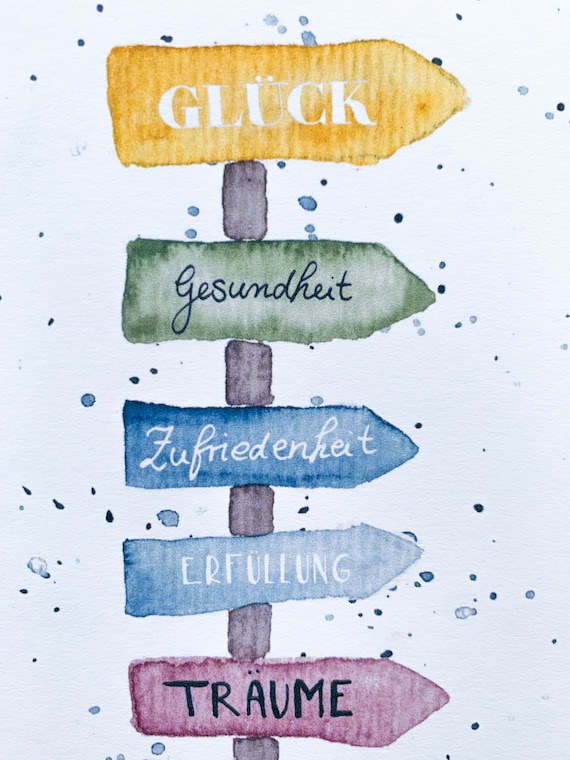 GLÜCK
Gesundheit
Zufriedenheit
ERFÜLLUNG
TRÄUME